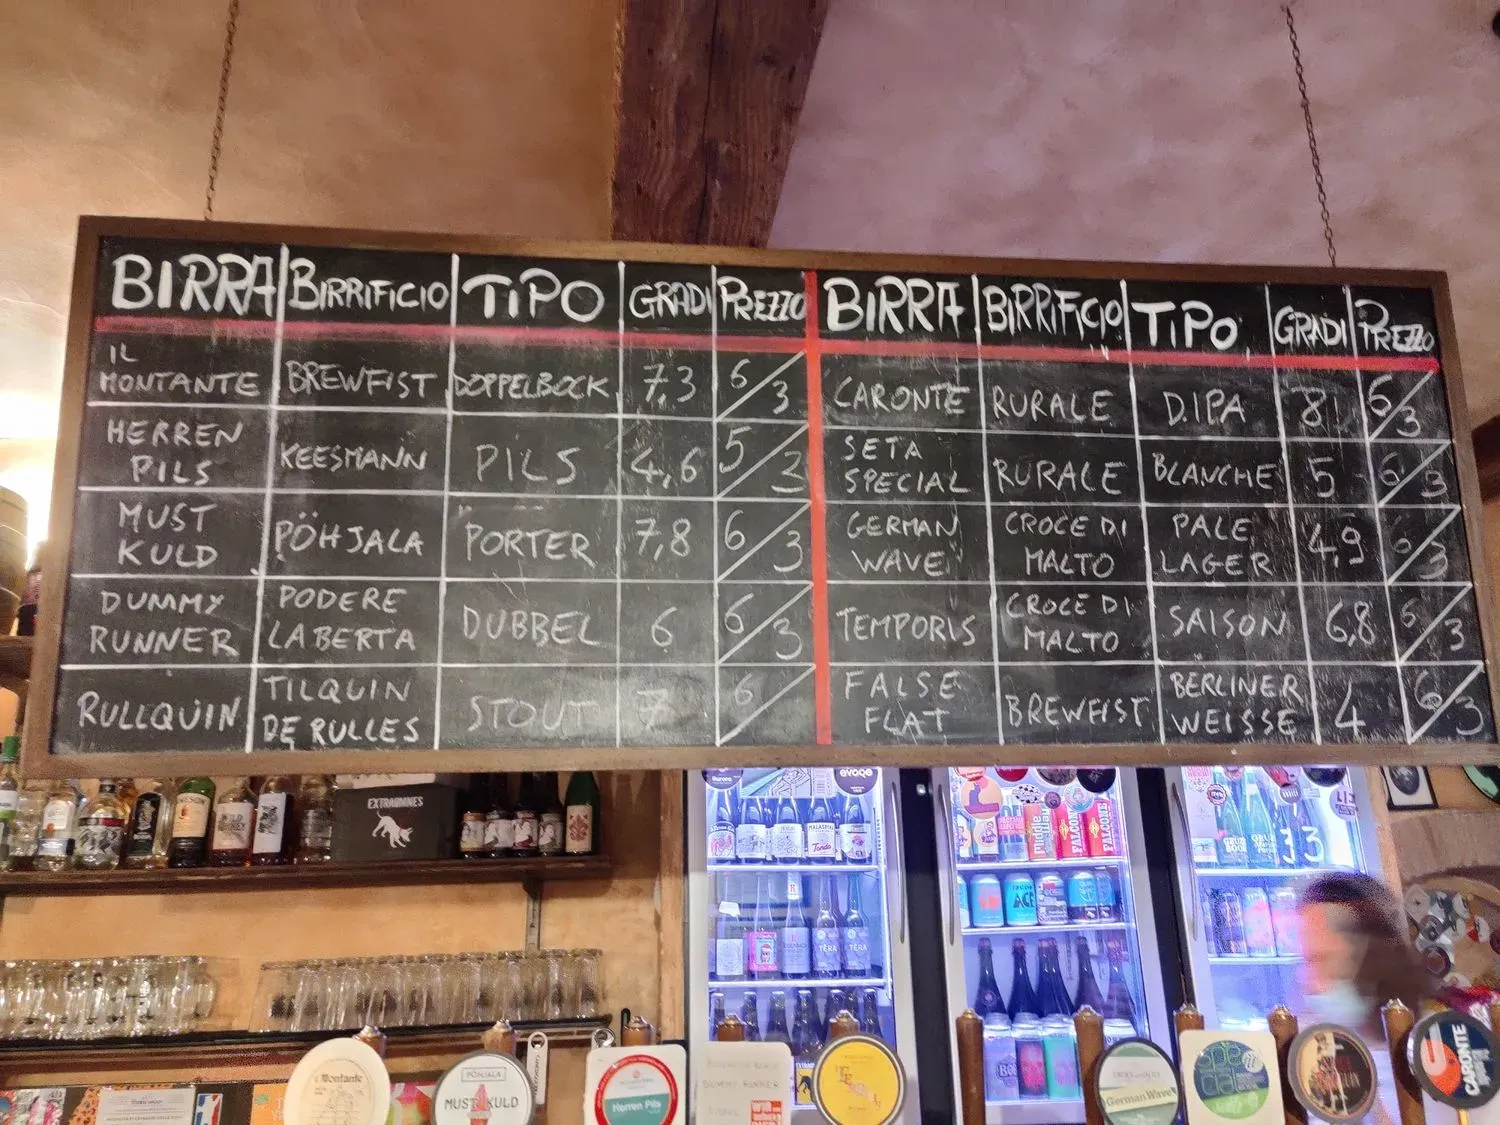 BIRRA BIRRIFICIO TIPO GRADI PREZZO BIRRA BIRRIFICIO TIPO GRADI PREZZO
IL
MONTANTE BREWFIST DOPPELBOCK 7,3 6/3 CARONTE RURALE D.IPA 8 6/3
HERREN
PILS KEESMANN PILS 4,6 5/3 SETA
SPECIAL RURALE BLANCHE 5 6/3
MUST
KULD PÖHJALA PORTER 7,8 6/3 GERMAN
WAVE CROCE DI
MALTO PALE
LAGER 4,9 6/3
DUMMY
RUNNER PODERE
LA BERTA DUBBEL 6 6/3 TEMPORIS CROCE DI
MALTO SAISON 6,8 6/3
RULLQUIN TILQUIN
DE RULLES STOUT 7 6/ FALSE
FLAT BREWFIST BERLINER
WEISSE 4 6/3
EXTRAOMNES
evoqe
MALASPINA
Tanda
FALCONE
FALCONE
ACE
TÈRA
TÈRA
Montante
PÖHJALA
MUST KULD
Herren Pils
DUMMY RUNNER
German Wave
CARONTE